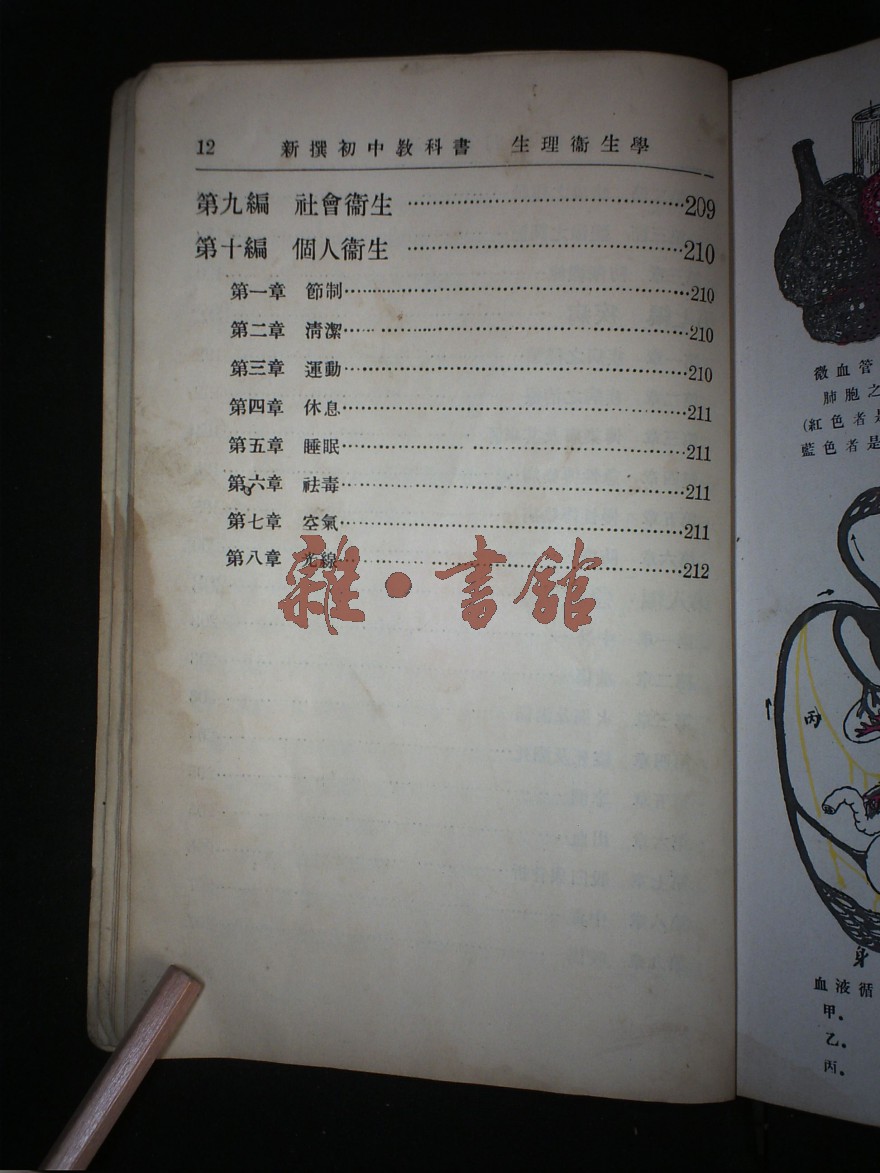 12 新撰初中教科書 生理衞生學
第九編 社會衞生 ……209
第十編 個人衞生 ……210
第一章 節制……210
第二章 清潔……210
第三章 運動……210
第四章 休息……211
第五章 睡眠……211
第六章 祛毒……211
第七章 空氣……211
第八章 光線……212
雜·書館
微血管
肺胞之
(紅色者是
藍色者是
丙
身
血液循
甲.
乙.
丙.